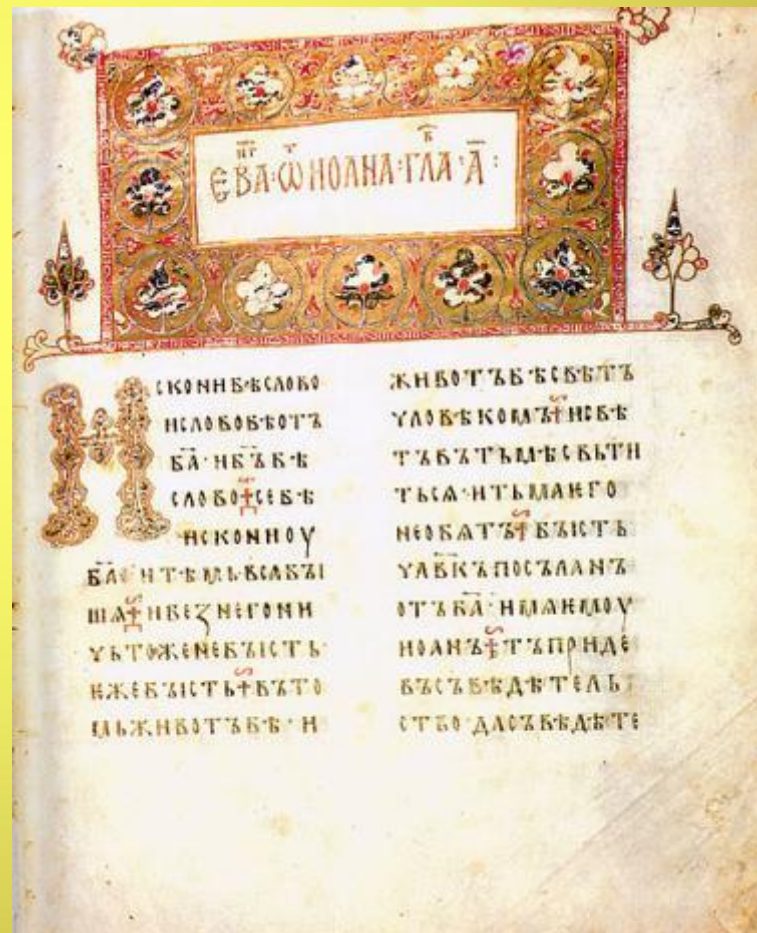 ЕВА·Ѿ ИОАНА·ГЛА·А҃:
ИСКОНИБѢСЛОВО
ИСЛОВОБѢОТЪ
Б҃А·ИБ҃ЪБѢ
СЛОВО СЕБѢ
ИСКОНИОУ
Б҃А· И ТѢМЬВСЯБЫ
ШѦ ИБЕЗНЕГОНИ
ЧЬТОЖЕНЕБЪІСТЬ·
ЕЖЕБЪІСТЬ ВЪТО
МЬЖИВОТЪБѢ· И
ЖИВОТЪБѢСВѢТЪ
ЧЛОВѢКОМЪ ИСВѢ
ТЪВЪТЬМѢСВЬТИ
ТЬСѦ·ИТЬМАѤГО
НЕОБѦТЪ БЪІСТЬ
ЧЛ҃ВКЪПОСЪЛАНЪ
ОТЪБ҃А·ИМѦѤМОУ
ИОАНЪ ТЪПРИДЕ
ВЪСЪВѢДѢТЕЛЬ
СТВО·ДАСЪВѢДѢТЕ